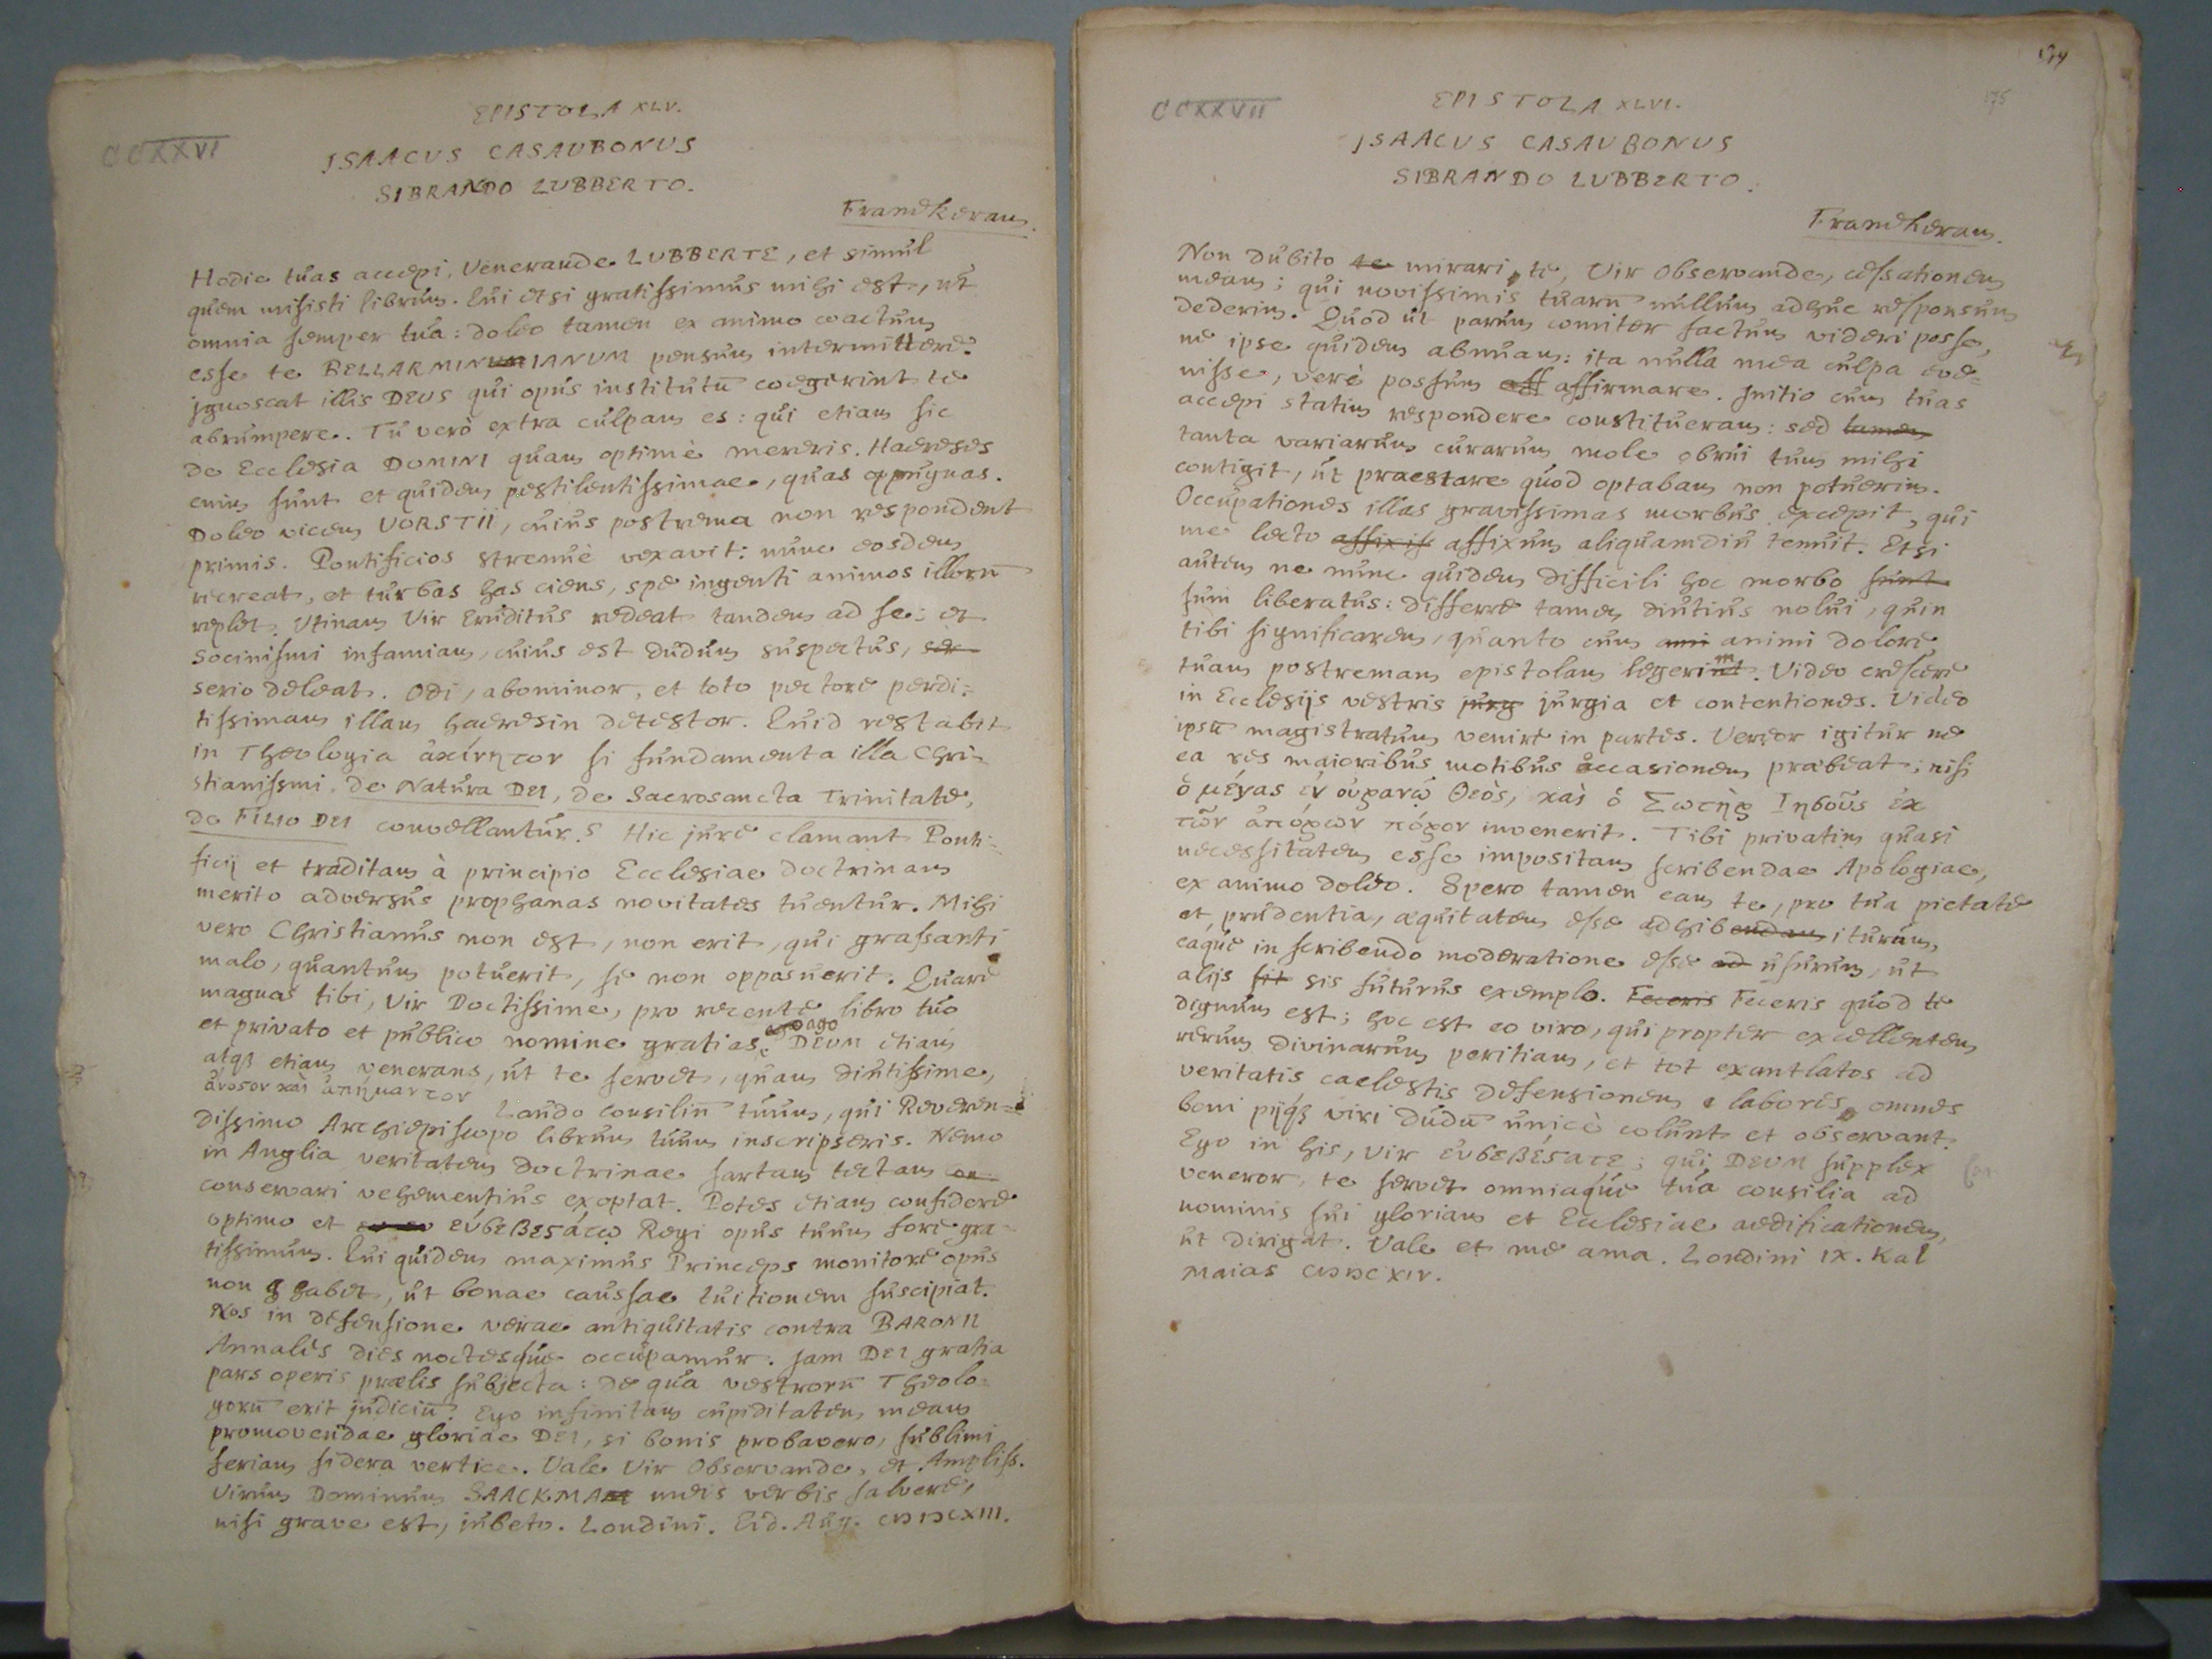 CCXXVI
EPISTOLA XLV.
ISAACVS CASAVBONVS
SIBRANDO LVBBERTO.
Franekeram.
Hodie tuas accepi, Venerande LVBBERTE, et simul
quem misisti librum. Cui etsi gratissimus mihi est, ut
omnia semper tua: doleo tamen ex animo coactum
esse te BELLARMINIANVM pensum intermittere.
Ignoscat illis DEVS qui opus institutū coegerint te
abrumpere. Tu verò extra culpam es: qui etiam sic
de Ecclesia DOMINI quam optimè mereris. Haereses
enim sunt et quidem pestilentissimae, quas oppugnas.
Doleo vicem VORSTII, cuius postrema non respondent
primis. Pontificios strenuè vexavit: nunc eosdem
recreat, et turbas has ciens, spe ingenti animos illorū
replet. Utinam Vir Eruditus redeat tandem ad se: et
Socinismi infamiam, cuius est dudum suspectus, ser
serio deleat. Odi, abominor, et toto pectore perdi-
tissimam illam haeresin detestor. Quid restabit
in Theologia ἀκίνητον si fundamenta illa Chri-
stianissmi, de Natura DEI, de Sacrosancta Trinitate,
de FILIO DEI convellantur? Hic jure clamant Ponti-
ficij et traditam à principio Ecclesiae doctrinam
merito adversus prophanas novitates tuentur. Mihi
vero Christianus non est, non erit, qui grassanti
malo, quantum potuerit, se non opposuerit. Quare
magnas tibi, Vir Doctissime, pro recente libro tuo
et privato et publico nomine gratias ago DEVM etiam
atqꝫ etiam venerans, ut te servet, quam diutissime,
ἄνοσον καὶ ἀπήμαντον Laudo consiliū tuum, qui Reveren-
dissimo Archiepiscopo librum tuum inscripseris. Nemo
in Anglia veritatem doctrinae sartam tectam con
conservari vehementius exoptat. Potes etiam confidere
optimo et εὐσεβεστάτῳ Regi opus tuum fore gra-
tissimum. Qui quidem maximus Princeps monitore opus
non habet, ut bonae caussae tuitionem suscipiat.
Nos in defensione verae antiquitatis contra BARONII
Annales dies noctesque occupamur. Jam DEI gratia
pars operis prælis subjecta: de qua vestrorū Theolo-
gorū erit judiciū. Ego infinitam cupiditatem meam
promovendae gloriae DEI, si bonis probavero, sublimi
feriam sidera vertice. Vale Vir Observande, et Ampliss.
Virum Dominum SAACKMAM meis verbis salvere,
nisi grave est, jubeto. Londini. Eid. Aug. CIↃIↃCXIII.
174
175
CCXXVII
EPISTOLA XLVI.
ISAACVS CASAVBONVS
SIBRANDO LVBBERTO.
Franekeram.
Non dubito te mirari, te, Vir Observande, cessationem
meam; qui novissimis tuarū nullum adhuc responsum
dederim. Quod ut parum comiter factum videri posse,
ne ipse quidem abnuam: ita nulla mea culpa eve-
nisse, verè possum aff affirmare. Initio cum tuas
accepi statim respondere constitueram: sed tamen
tanta variarum curarum mole obrui tum mihi
contigit, ut praestare quod optabam non potuerim.
Occupationes illas gravissimas morbus excepit, qui
me lecto affixis affixum aliquamdiu tenuit. Etsi
autem ne nunc quidem difficili hoc morbo sunt
sum liberatus: differre tamen diutius nolui, quin
tibi significarem, quanto cum ani animi dolore
tuam postremam epistolam legerim. Video crescere
in Ecclesijs vestris jurg jurgia et contentiones. Video
ipsū magistratum venire in partes. Vereor igitur ne
ea res maioribus motibus occasionem præbeat; nisi
ὁ μέγας ἐν οὐρανῷ Θεὸς, καὶ ὁ Σωτὴρ Ἰησοῦς ἐκ
τῶν ἀπόρων πόρον invenerit. Tibi privatim quasi
necessitatem esse impositam scribendae Apologiae,
ex animo doleo. Spero tamen eam te, pro tua pietate
et prudentia, æquitatem esse adhibendam iturum,
eaque in scribendo moderatione esse ad usurum, ut
alijs sit sis futurus exemplo. Feceris Feceris quod te
dignum est; hoc est eo viro, qui propter excellentem
rerum divinarum peritiam, et tot exantlatos ad
veritatis caelestis defensionem labores, omnes
boni pijqꝫ viri dudū unicè colunt et observant.
Ego in his, vir εὐσεβέστατε; qui DEVM supplex
veneror, te servet omniaque tua consilia ad
nominis sui gloriam et Ecclesiae aedificationem,
ut dirigat. Vale et me ama. Londini IX. Kal
Maias CIↃIↃCXIV.